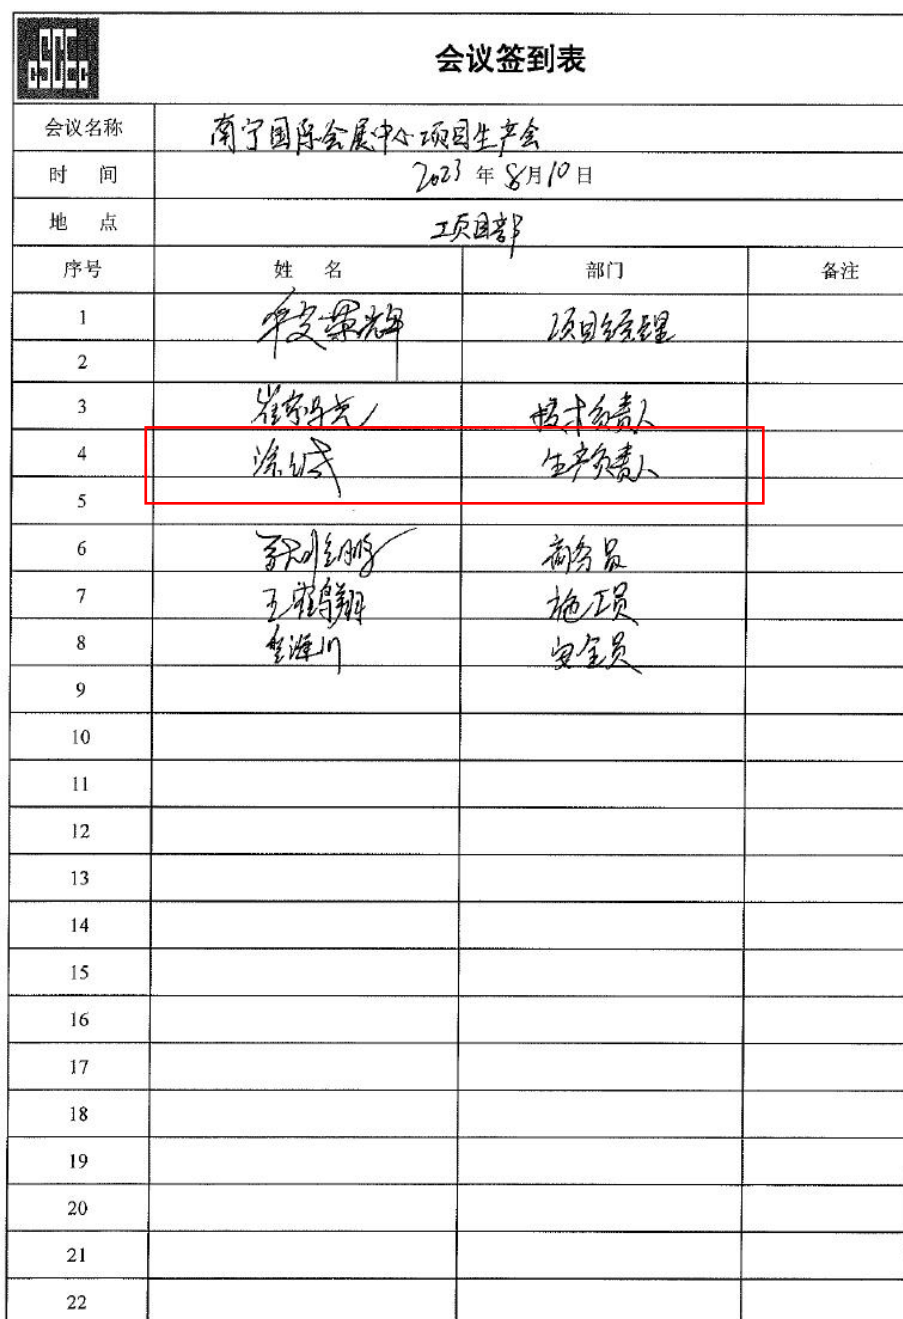 CSCEC
会议签到表
会议名称 南宁国际会展中心项目生产会
时 间 2023 年 8月10日
地 点 项目部
序号 姓 名 部门 备注
1 项目经理
2
3 技术负责人
4 生产负责人
5
6 商务员
7 王鹤翔 施工员
8 安全员
9
10
11
12
13
14
15
16
17
18
19
20
21
22